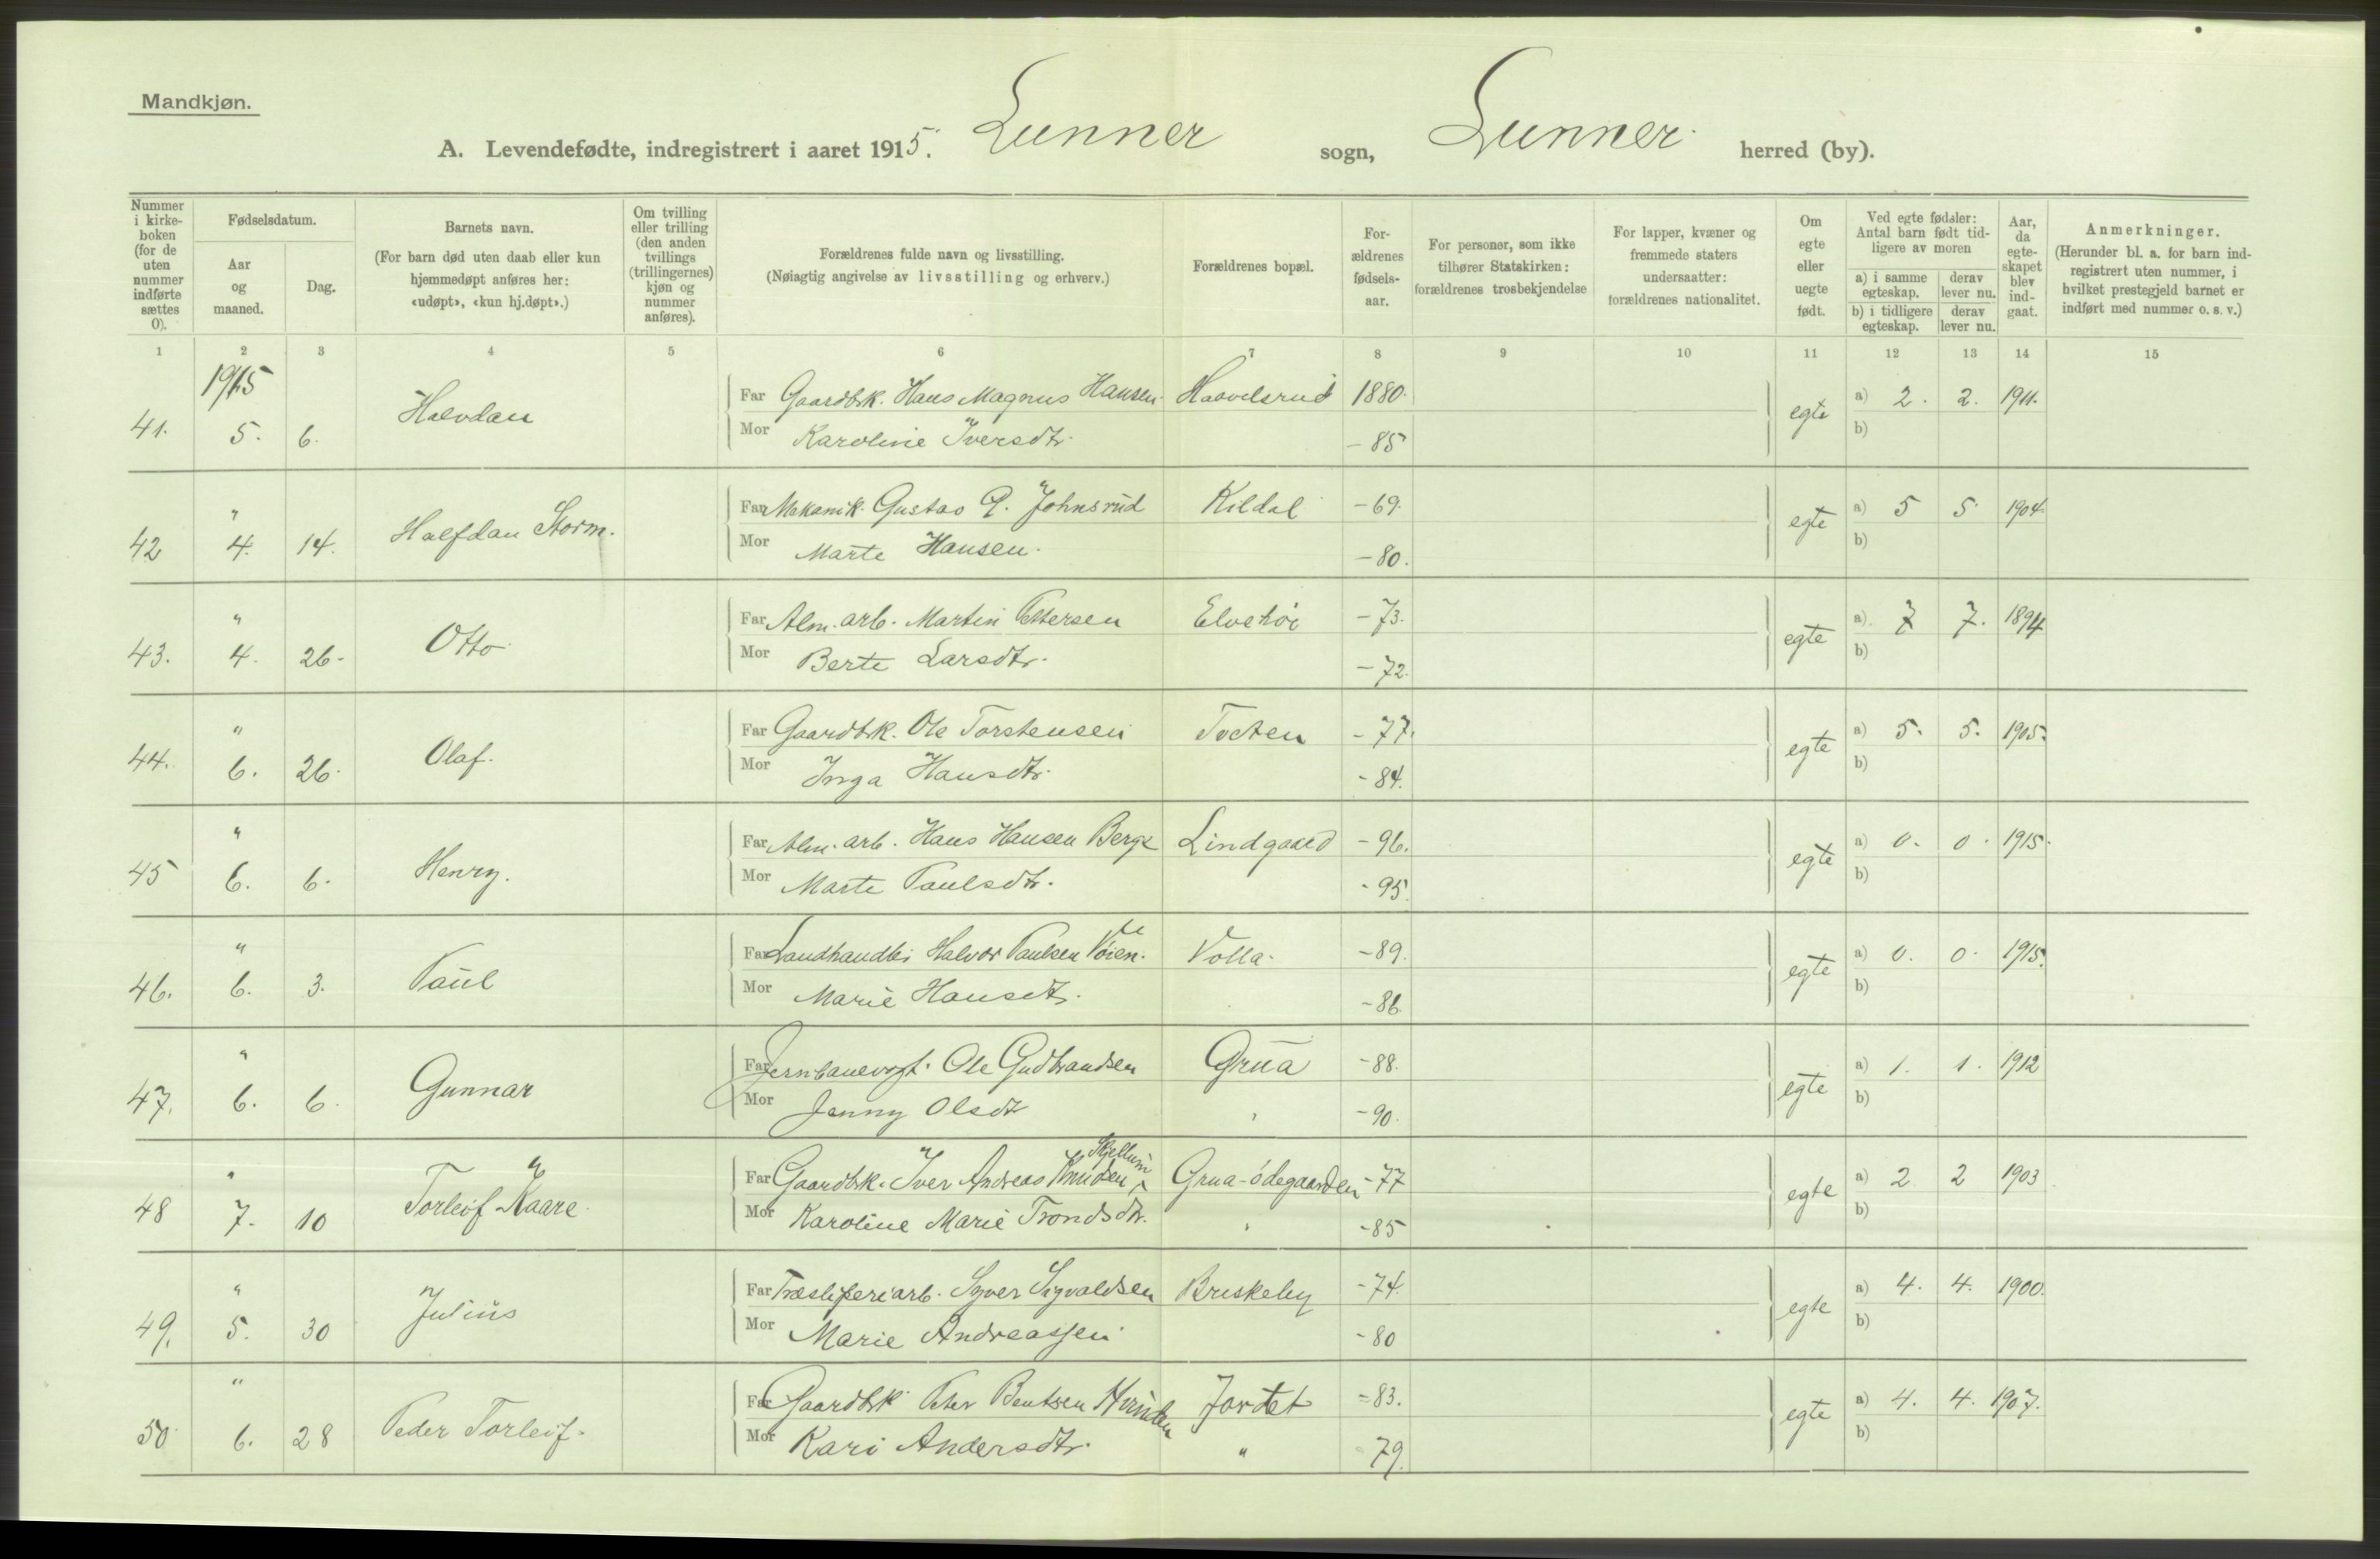 Mandkjøn.
A. Levendefødte, indregistrert i aaret 1915. Lunner sogn, Lunner herred (by).
Nummer i kirkeboken (for de uten nummer indførte sættes 0).
Fødselsdatum.
Aar og maaned.
Dag.
Barnets navn.
(For barn død uten daab eller kun hjemmedøpt anføres her: «udøpt», «kun hj.døpt».)
Om tvilling eller trilling (den anden tvillings (trillingernes) kjøn og nummer anføres).
Forældrenes fulde navn og livsstilling.
(Nøiagtig angivelse av livsstilling og erhverv.)
Forældrenes bopæl.
Forældrenes fødselsaar.
For personer, som ikke tilhører Statskirken: forældrenes trosbekjendelse
For lapper, kvæner og fremmede staters undersaatter: forældrenes nationalitet.
Om egte eller uegte født.
Ved egte fødsler: Antal barn født tidligere av moren
a) i samme egteskap. derav lever nu.
b) i tidligere egteskap. derav lever nu.
Aar, da egteskapet blev indgaat.
Anmerkninger.
(Herunder bl. a. for barn indregistrert uten nummer, i hvilket prestegjeld barnet er indført med nummer o. s. v.)
1 2 3 4 5 6 7 8 9 10 11 12 13 14 15
1915
41. 5. 6. Halvdan Far Gaardbk. Hans Magnus Hansen. 1880. egte a) 2. 2. 1911.
Mor Karoline Iversdtr. - 85 b)
42 " 4. 14. Halfdan Storm. Far Mekanik. Gustav P. Johnsrud Kildal - 69. egte a) 5 5. 1904.
Mor Marte Hansen. - 80. b)
43. " 4. 26. Otto Far Alm. arb. Martin Pettersen Elvehøi - 73. egte a) 7 7. 1894
Mor Berte Larsdtr. - 72. b)
44. " 6. 26. Olaf. Far Gaardbk. Ole Torstensen Tveten - 77. egte a) 5. 5. 1905.
Mor Inga Hansdtr. - 84. b)
45 " 6. 6. Henry. Far Alm. arb. Hans Hansen Berge Lindgaard - 96. egte a) 0. 0. 1915.
Mor Marte Paulsdtr. - 95. b)
46. " 6. 3. Paul Far Landhandler Halvor Paulsen Volla. - 89. egte a) 0. 0. 1915.
Mor Marie Hansdtr. - 86. b)
47. " 6. 6. Gunnar Far Jernbanevogt. Ole Gudbrandsen Grua - 88. egte a) 1. 1. 1912
Mor Jenny Olsdtr " - 90. b)
48 " 7. 10 Torleif Kaare Far Gaardbk. Iver Andreas Knudsen Skjellum Grua-ødegaarden - 77 egte a) 2 2 1903
Mor Karoline Marie Trondsdtr. " - 85 b)
49. " 5. 30 Julius Far Træsliperiarb. Syver Sigvaldsen Briskeby - 74. egte a) 4. 4. 1900.
Mor Marie Andreassen - 80 b)
50 " 6. 28 Peder Torleif. Far Gaardbk Peter Bentsen Hvinden Jordet - 83. egte a) 4. 4. 1907.
Mor Kari Andersdtr. " 79. b)